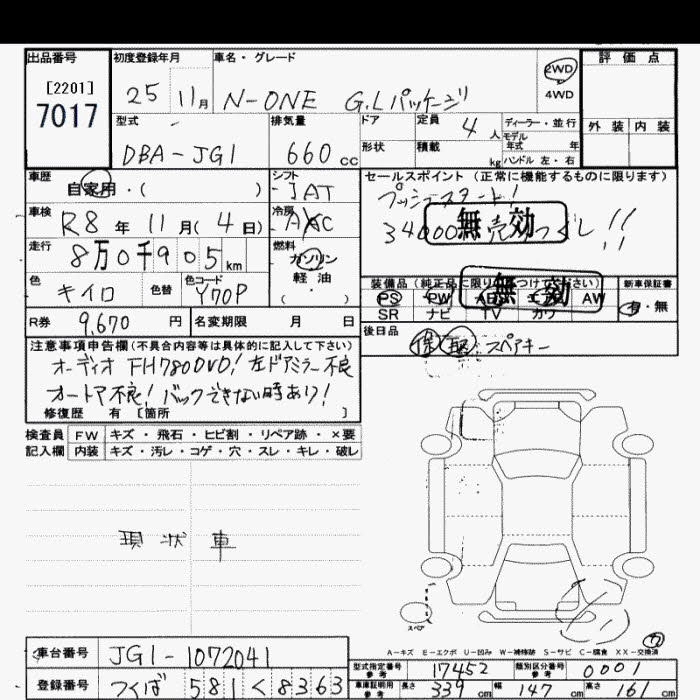 出品番号 初度登録年月 車名・グレード 評価点
[2201] 25 11月 N-ONE G.Lパッケージ 2WD
7017 4WD
型式 排気量 ドア 定員 4人 ディーラー・並行 外装 内装
DBA-JG1 660cc 形状 積載 kg モデル年式 年 ハンドル 左・右
車歴 シフト セールスポイント(正常に機能するものに限ります)
自家用・( ) IAT プッシュスタート!
車検 R8年 11月(4日) 冷房 AXC 34000 無効 売 つくし!!
走行 8万0千905km 燃料 ガソリン
軽油
( )
色 キイロ 色替 色コード Y70P
装備品(純正品に限り つけて さい) 無効 新車保証書
PS PW AB エア AW 有・無
SR ナビ TV カワ
R券 9,670円 名変期限 月 日
後日品 保 取 スペアキー
注意事項申告欄(不具合内容等は具体的に記入して下さい)
オーディオ FH780DVD! 左ドアミラー不良
オートア不良! バックできない時あり!
修復歴 有[箇所 ]
検査員 FW キズ・飛石・ヒビ割・リペア跡・×要
記入欄 内装 キズ・汚レ・コゲ・穴・スレ・キレ・破レ
現状車
スペア
A-キズ E-エクボ U-凹み W-補修跡 S-サビ C-腐食 XX-交換済
車台番号 JG1-1072041
型式指定番号 参考 17452 類別区分番号 参考 0001
登録番号 つくば 581 く 8363
車庫証明用 参考 長さ 339cm 幅 147cm 高さ 161cm